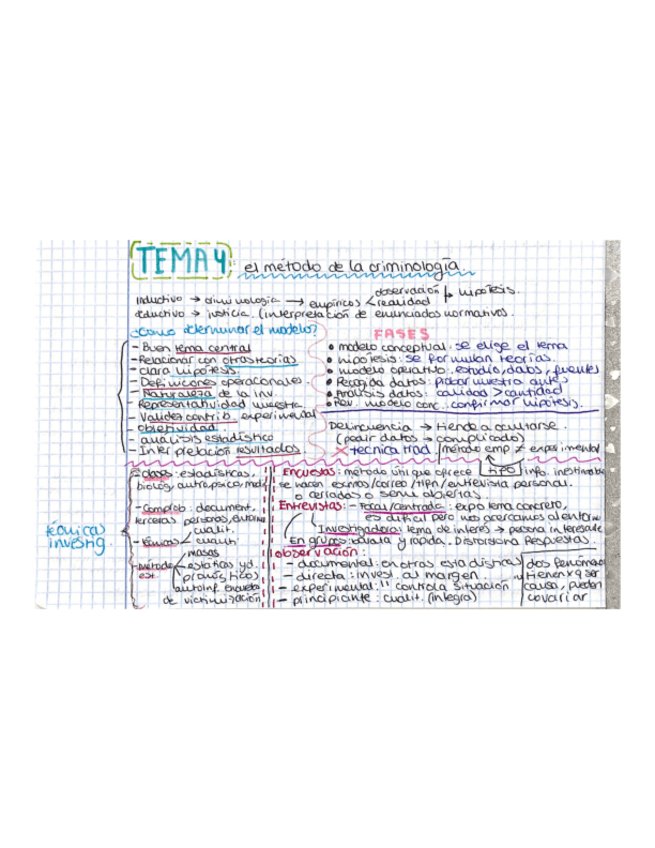 TEMA 4: el método de la criminología.
observación
inductivo → criminología → empíricos < realidad hipótesis.
deductivo → justicia. (interpretación de enunciados normativos.
¿Como determinar el modelo?
- Buen tema central
- Relacionar con otras teorías
- clara hipótesis.
- Definiciones operacionales
- Naturaleza de la inv.
- Representatividad muestra.
- Validez contrib. experimental
- objetividad.
- análisis estadístico
- Interpretación resultados
FASES
• modelo conceptual: se elige el tema
• hipótesis: se formulan teorías.
• modelo operativo: estudio, datos, fuentes
• Recogida datos: probar muestra antes
• Análisis datos: calidad > cantidad
• Rev. modelo conc.: confirmar hipótesis.
Delincuencia → tiende a ocultarse.
(pedir datos → complicado)
X tecnica trad. / método emp ≠ experimental
técnicas
investig.
: estadísticas,
biológ, antropsico, med
- Comprob: document,
terceras personas,
cualit.
- < cuantit.
masas
- método < estáticas y d.
est. pronóstico
autoinf. encuesta
de victimización
Encuestas: método útil que ofrece TIPO info. inestimable
se hacen exmos/correo/tlfn/entrevista personal.
o cerradas o semi abiertas.
Entrevistas: - Focal/centrada: expo tema concreto,
es difícil pero nos acercamos al entorno
Investigadora: tema de interés → persona interesante
En grupos: barata y rápida. Distorsiona Respuestas.
observación:
- documental: en otras estadísticas
- directa: invest. al margen
- experimental: " controla situación
- principiante: cualit. (integra)
dos fenómeno
tienen x q ser
causa, pueden
covariar